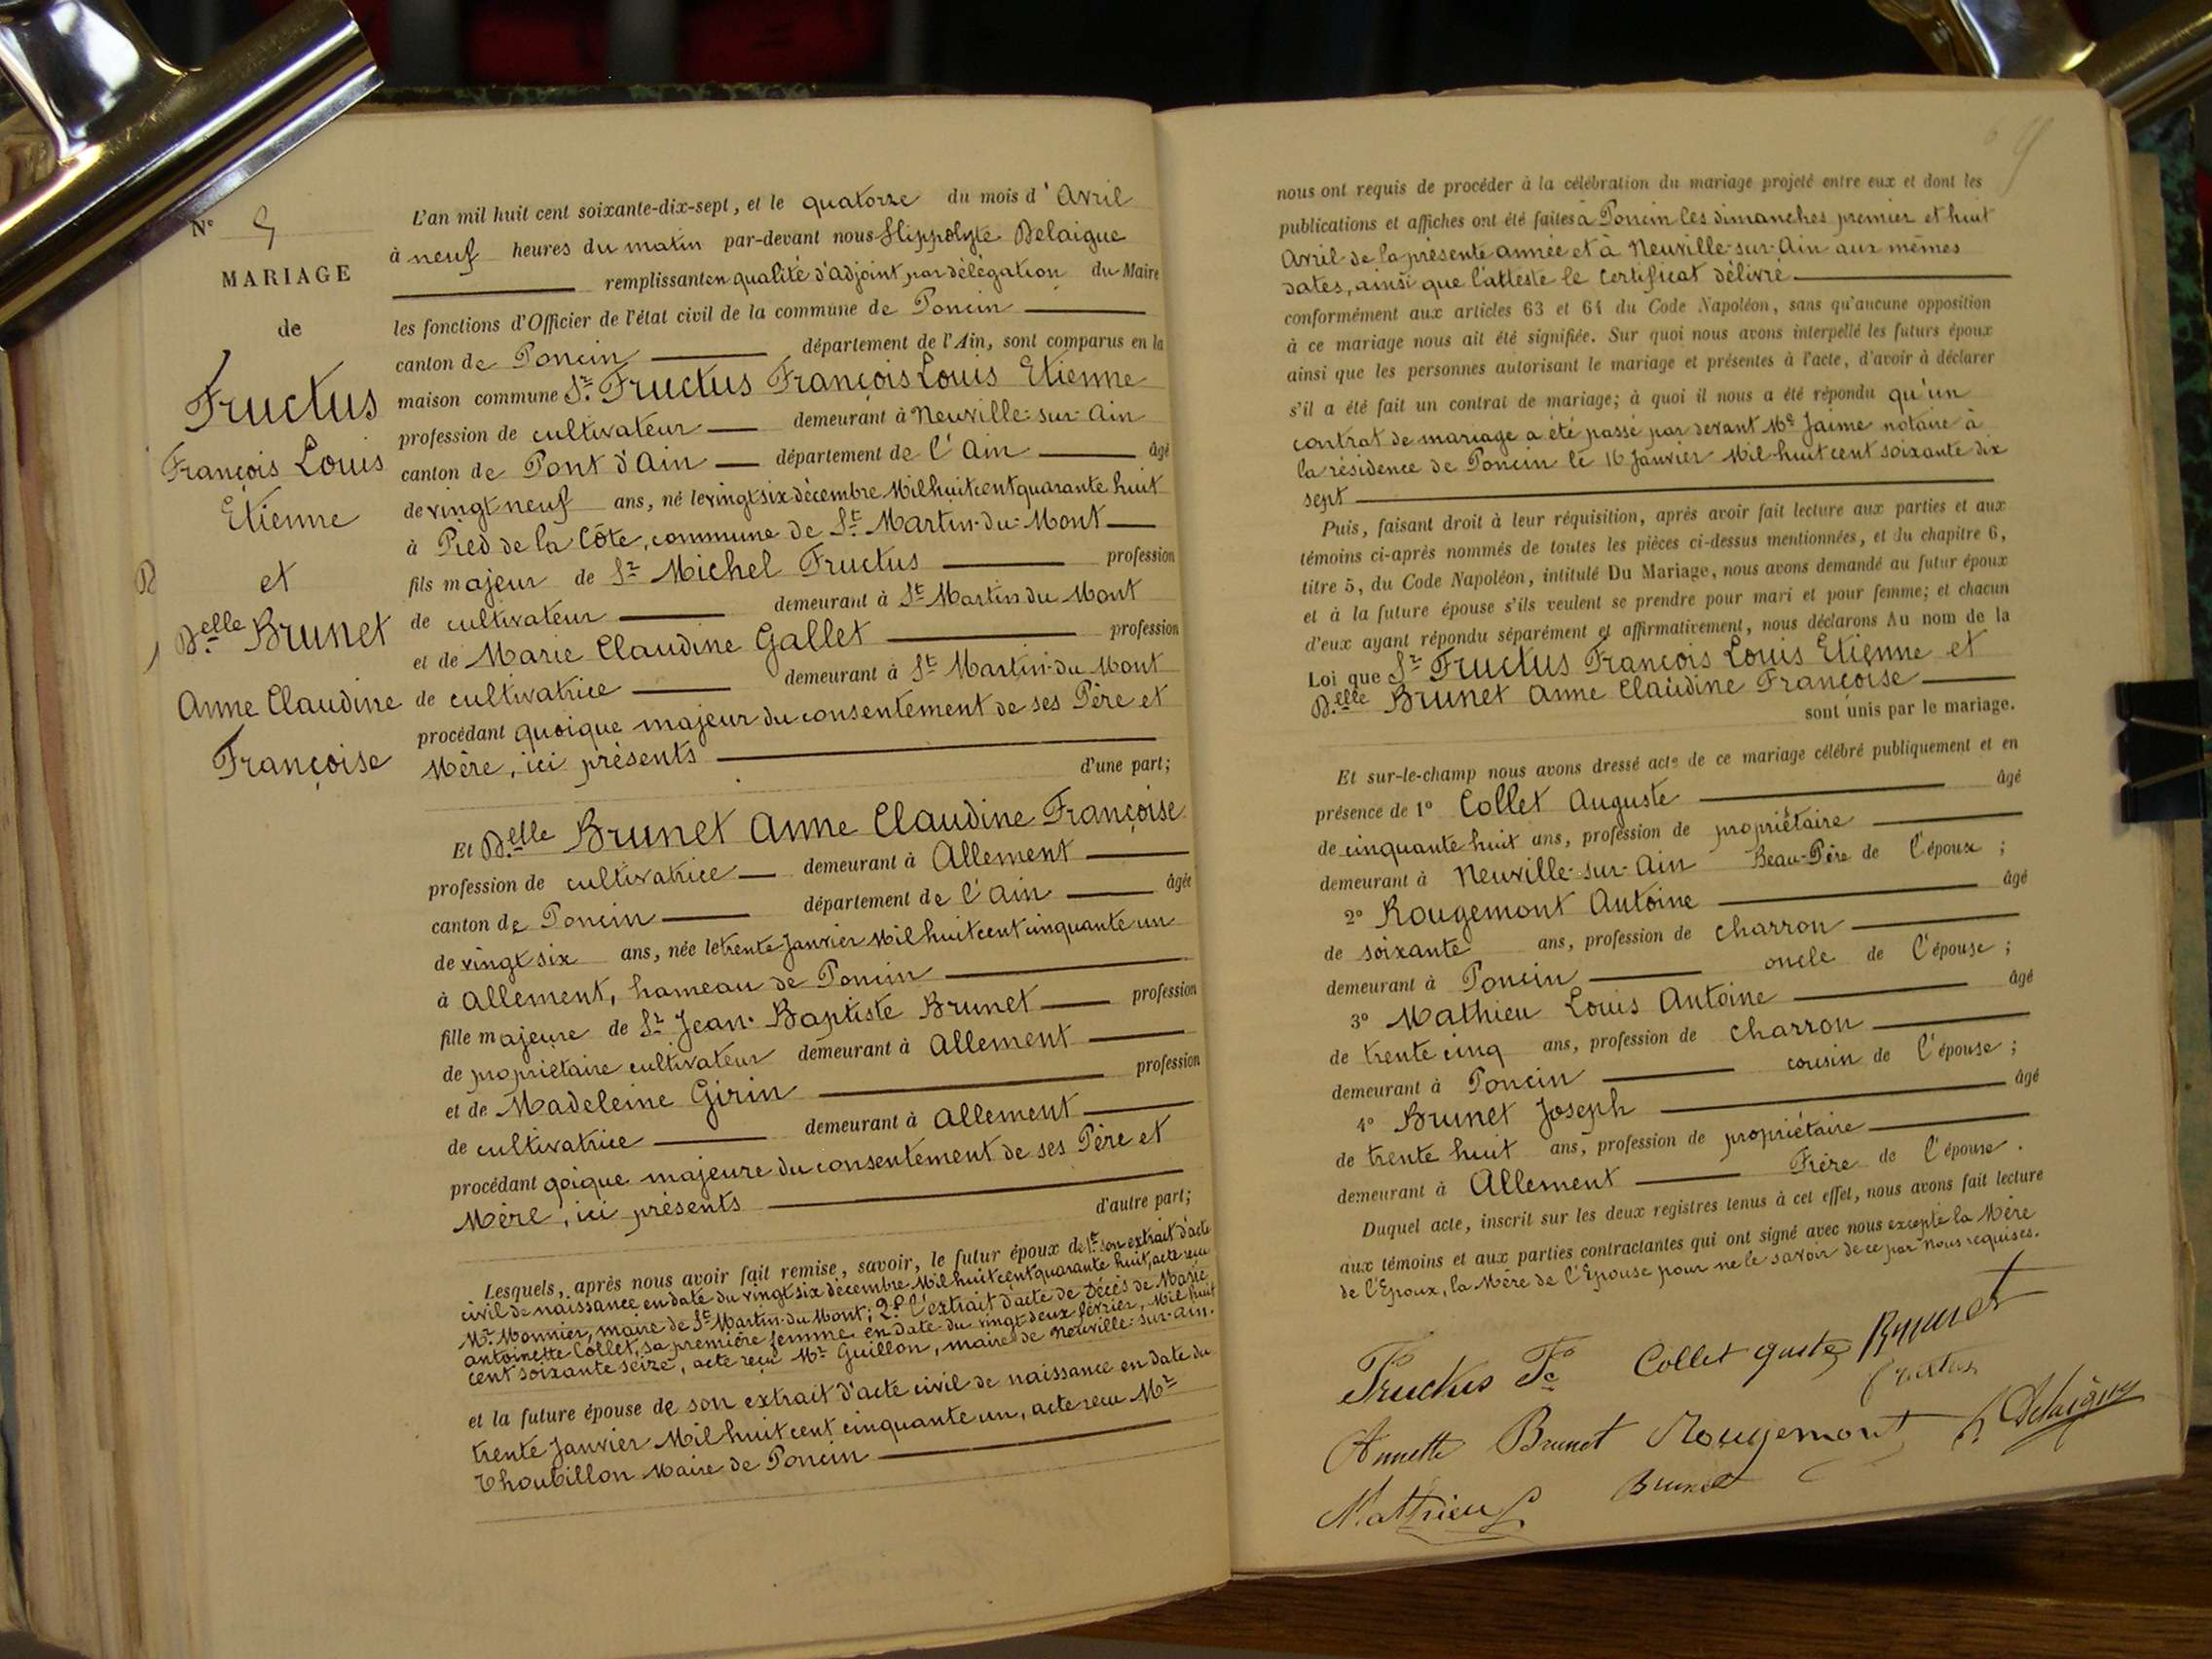 N° 9
MARIAGE
de
Fructus
François Louis
Etienne
et
Delle Brunet
Anne Claudine
Françoise
L'an mil huit cent soixante-dix-sept, et le quatorze du mois d'Avril
à neuf heures du matin par-devant nous Hippolyte Delaigue
remplissant en qualité d'adjoint, par délégation du Maire
les fonctions d'Officier de l'état civil de la commune de Poncin
canton de Poncin département de l'Ain, sont comparus en la
maison commune Sr Fructus François Louis Etienne
profession de cultivateur demeurant à Neuville-sur-Ain
canton de Pont d'Ain département de l'Ain âgé
de vingt neuf ans, né le vingt six décembre Mil huit cent quarante huit
à Pied de la Côte, commune de St Martin-du-Mont
fils majeur de Sr Michel Fructus profession
de cultivateur demeurant à St Martin du Mont
et de Marie Claudine Gallet profession
de cultivatrice demeurant à St Martin-du Mont
procédant quoique majeur du consentement de ses Père et
Mère, ici présents
d'une part;
Et Delle Brunet Anne Claudine Françoise
profession de cultivatrice demeurant à Allement
canton de Poncin département de l'Ain âgée
de vingt six ans, née le trente Janvier Mil huit cent cinquante un
à Allement, hameau de Poncin
fille majeure de Sr Jean-Baptiste Brunet profession
de propriétaire cultivateur demeurant à Allement
et de Madeleine Girin profession
de cultivatrice demeurant à Allement
procédant qoique majeure du consentement de ses Père et
Mère, ici présents
d'autre part;
Lesquels, après nous avoir fait remise, savoir, le futur époux de 1° son extrait d'acte
civil de naissance en date du vingt six décembre Mil huit cent quarante huit, acte reçu
Mr Monnier, maire de St Martin-du Mont; 2° l'extrait d'acte de Décès de Marie
antoinette Collet, sa première femme en date du vingt deux février, Mil huit
cent soixante seize, acte reçu Mr Guillon, maire de Neuville-sur-Ain.
et la future épouse de son extrait d'acte civil de naissance en date du
trente Janvier Mil huit cent cinquante un, acte reçu Mr
Thoubillon Maire de Poncin
nous ont requis de procéder à la célébration du mariage projeté entre eux et dont les
publications et affiches ont été faites à Poncin les dimanches premier et huit
Avril de la présente année et à Neuville-sur-Ain aux mêmes
dates, ainsi que l'atteste le Certificat délivré
conformément aux articles 63 et 64 du Code Napoléon, sans qu'aucune opposition
à ce mariage nous ait été signifiée. Sur quoi nous avons interpellé les futurs époux
ainsi que les personnes autorisant le mariage et présentes à l'acte, d'avoir à déclarer
s'il a été fait un contrat de mariage; à quoi il nous a été répondu qu'un
contrat de mariage a été passé par devant Me Jaime notaire à
la résidence de Poncin le 16 Janvier Mil-huit cent soixante dix
sept
Puis, faisant droit à leur réquisition, après avoir fait lecture aux parties et aux
témoins ci-après nommés de toutes les pièces ci-dessus mentionnées, et du chapitre 6,
titre 5, du Code Napoléon, intitulé Du Mariage, nous avons demandé au futur époux
et à la future épouse s'ils veulent se prendre pour mari et pour femme; et chacun
d'eux ayant répondu séparément et affirmativement, nous déclarons Au nom de la
Loi que Sr Fructus François Louis Etienne et
Delle Brunet Anne Claudine Françoise
sont unis par le mariage.
Et sur-le-champ nous avons dressé acte de ce mariage célébré publiquement et en
présence de 1° Collet Auguste âgé
de cinquante huit ans, profession de propriétaire
demeurant à Neuville-sur-Ain Beau-Père de l'époux ;
2° Rougemont Antoine âgé
de soixante ans, profession de charron
demeurant à Poncin oncle de l'épouse ;
3° Mathieu Louis Antoine âgé
de trente cinq ans, profession de charron
demeurant à Poncin cousin de l'épouse ;
4° Brunet Joseph âgé
de trente huit ans, profession de propriétaire
demeurant à Allement Frère de l'épouse.
Duquel acte, inscrit sur les deux registres tenus à cet effet, nous avons fait lecture
aux témoins et aux parties contractantes qui ont signé avec nous excepté la Mère
de l'Epoux, la Mère de l'Epouse pour ne le savoir de ce par Nous requises.
Fructus Fs Collet guste Brunet
Fructus
Annette Brunet Rougemont h Delaigue
Mathieu L Brunet